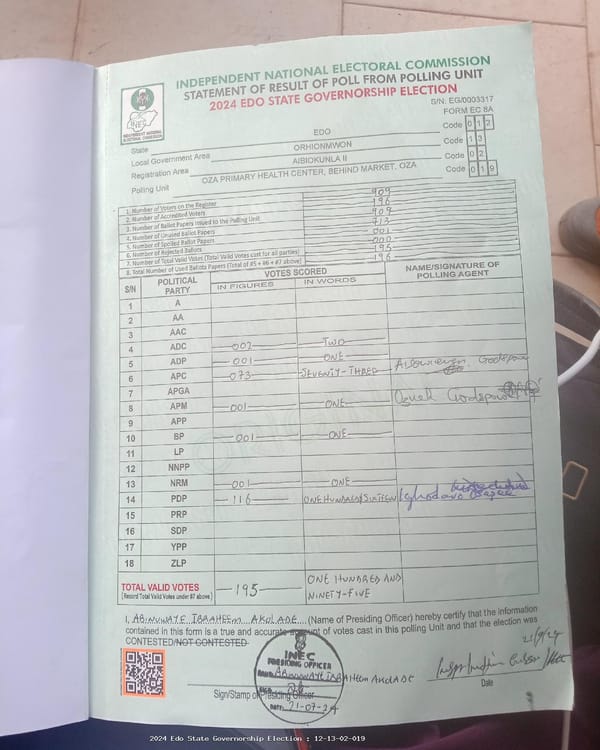 INDEPENDENT NATIONAL ELECTORAL COMMISSION
STATEMENT OF RESULT OF POLL FROM POLLING UNIT
2024 EDO STATE GOVERNORSHIP ELECTION
S/N. EG/0003317
FORM EC 8A
INEC
INDEPENDENT NATIONAL ELECTORAL COMMISSION
State EDO Code 012
Local Government Area ORHIONMWON Code 13
Registration Area AIBIOKUNLA II Code 02
Polling Unit OZA PRIMARY HEALTH CENTER, BEHIND MARKET. OZA Code 019
1. Number of Voters on the Register 909
2. Number of Accredited Voters 196
3. Number of Ballot Papers Issued to the Polling Unit 909
4. Number of Unused Ballot Papers 713
5. Number of Spoiled Ballot Papers 001
6. Number of Rejected Ballots 000
7. Number of Total Valid Votes (Total Valid Votes cast for all parties) 195
8. Total Number of Used Ballots Papers (Total of #5 + #6 + #7 above) 196
S/N POLITICAL PARTY VOTES SCORED NAME/SIGNATURE OF POLLING AGENT
IN FIGURES IN WORDS
1 A
2 AA
3 AAC
4 ADC 002 TWO
5 ADP 001 ONE
6 APC 073 SEVENTY-THREE Godspower
7 APGA
8 APM 001 ONE Godspower
9 APP
10 BP 001 ONE
11 LP
12 NNPP
13 NRM 001 ONE
14 PDP 116 ONE HUNDRED/SIXTEEN
15 PRP
16 SDP
17 YPP
18 ZLP
TOTAL VALID VOTES 195 ONE HUNDRED AND
(Record Total Valid Votes under #7 above) NINETY-FIVE
I, ABINUWAYE IBRAHEEM AKOLADE (Name of Presiding Officer) hereby certify that the information
contained in this form is a true and accurate account of votes cast in this polling Unit and that the election was
CONTESTED/NOT CONTESTED
INEC
PRESIDING OFFICER
ABINUWAYE IBRAHEEM AKOLADE
DATE: 21-09-24
Sign/Stamp of Presiding Officer
21/9/24
Date
2024 Edo State Governorship Election : 12-13-02-019